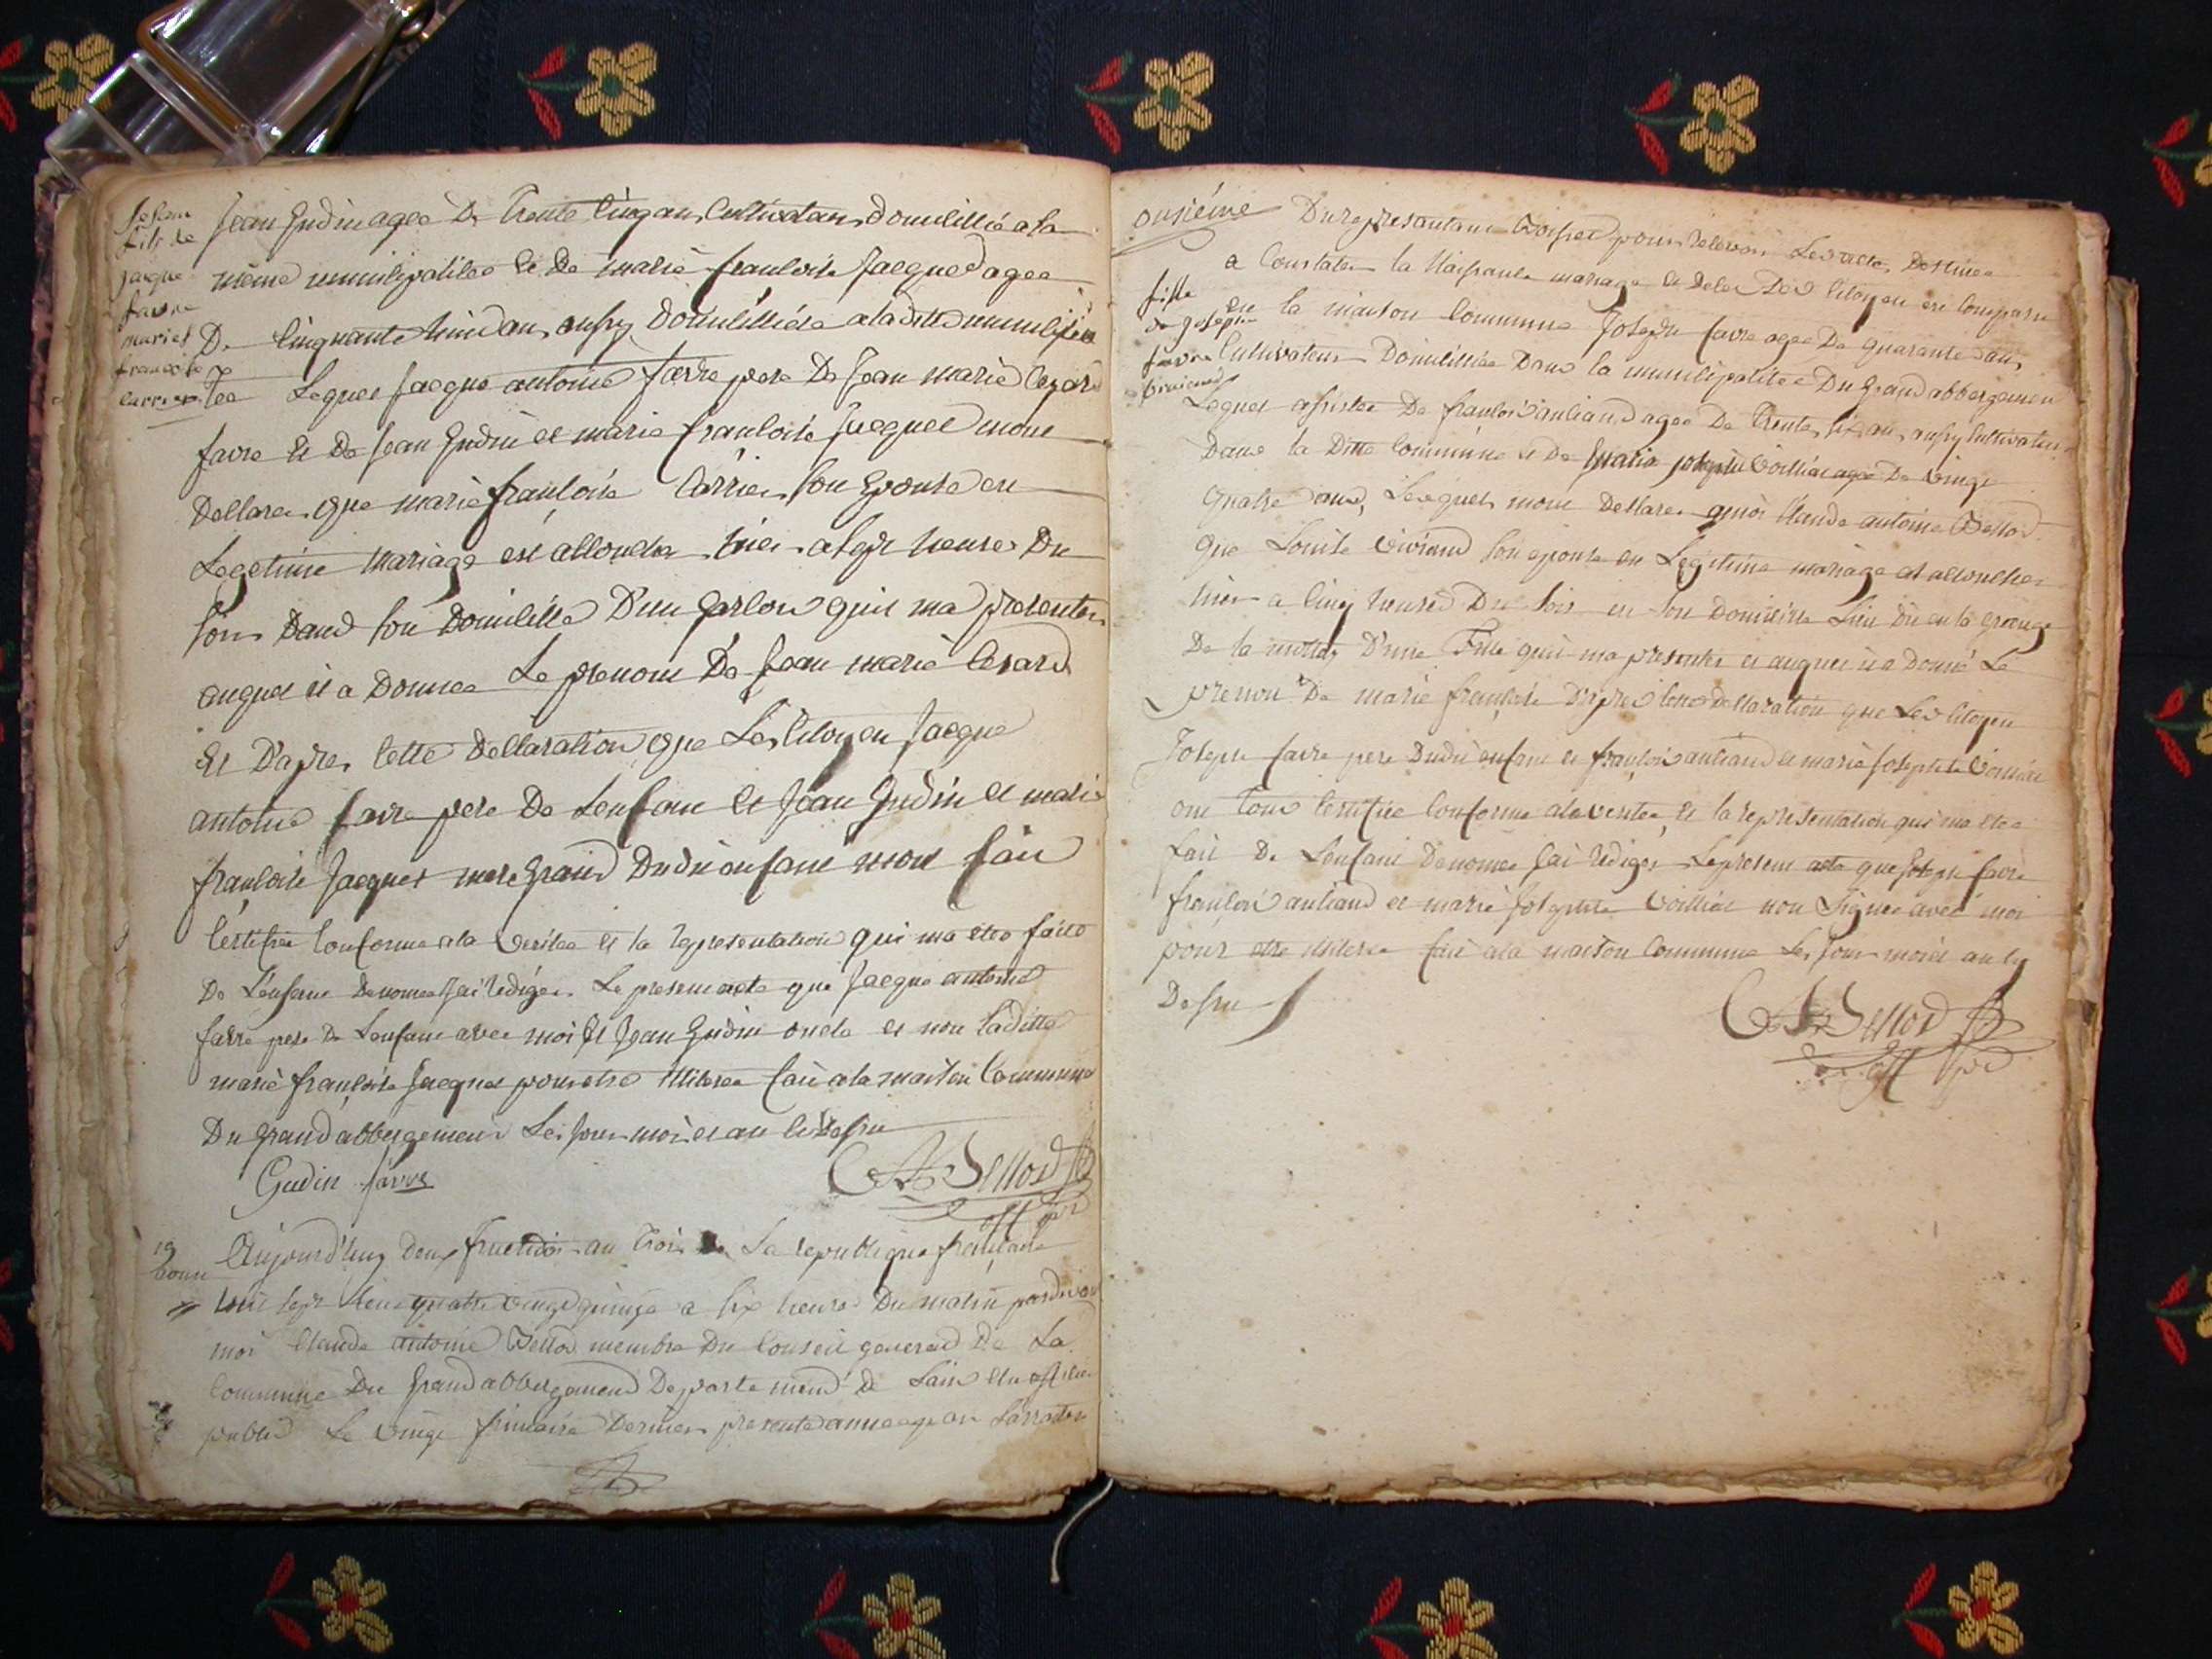 fils de
jaque
favre
mariee
francoise
carrier
Jean Gudin agee De Trente Cinq ans Cultivateur Domicillié a la
même municipalitee et De marie francoise Jacques agee
De Cinquante huit ans aussy Domicilliée a la ditte municipa
tee Leques Jacque antoine favre pere De Jean marie Cezard
favre et De Jean Gudin et marie francoise Jacques mont
Dellarer que marie françoise Carrier son Epouse en
Legetime Mariage est allouchee hier a sept heures Du
soir Dans son Domicille D'un garson quil ma presenter
auquel il a Donnee Le prenom De Jean marie Cesard
Et D'apres Cette Dellaration que Les Citoyen Jacque
antoine favre pere De Lenfant et Jean Gudin et marie
françoise Jacques mere grand Dudit enfant mont fait
Certifiee Conforme a la Veritee et la representation qui ma etee faite
De Lenfant Denomee Jai rediger Le present acte que Jacque antoine
favre pere De Lenfant avec moi et Jean Gudin oncle et non laditte
marie françoise Jacques pour etre illiteree fait a la maison Commune
Du grand abbergement Les jour mois et an Cy Dessu
Gudin favre
CA Bellod
19
Aujourd'huy Deux fructidor an trois De La republique française
mil sept Cent quatre vingt quinze a six heures Du matin pardevant
moi Claude antoine Bellod membre Du Conseil general De La
Commune Du grand abbergement Departement De Lain Elu officier
public Le Vingt frimaire Dernier presente annee par Larretee
onsiéme
fille
de Joseph
favre
Du representant Boisset pour recevoir Les acte Destinee
a Constater la Naissance mariage et Deces Des Citoyen est Comparu
en la maison Commune Joseph favre agee De quarante ans
Cultivateur Domicilliee Dans la municipalitee Du Grand abbergement
Lequel assistee De francois auliand agee De trente six ans aussy Cultivateur
Dans la Ditte Commune et De Marie josephte Voilliat agee De Vingt
quatre ans, Lesquels mont Dellarer a moi Claude antoine Bellod
que Louise Vivians son epouse en Legitime mariage est accouchee
hier a Cinq heures Du soir en son Domicille Lieu Dit en la grange
De la D'une Fille quil ma presenter et auquel il a Donné Le
prenom De marie françoise D'apres Cette Dellaration que Les Citoyen
Joseph favre pere Dudit enfant et françois auliand et marie Josephte Voilliat
ont tous Certifiee Conforme a la veritee, et la representation qui ma etee
fait De Lenfant Denomee Jai rediger Le present acte que Joseph favre
françois auliand et marie Josephte Voilliat non Signee avec moi
pour etre illiteree fait a la maison Commune Les Jour mois et an Cy
Dessu
CA Bellod